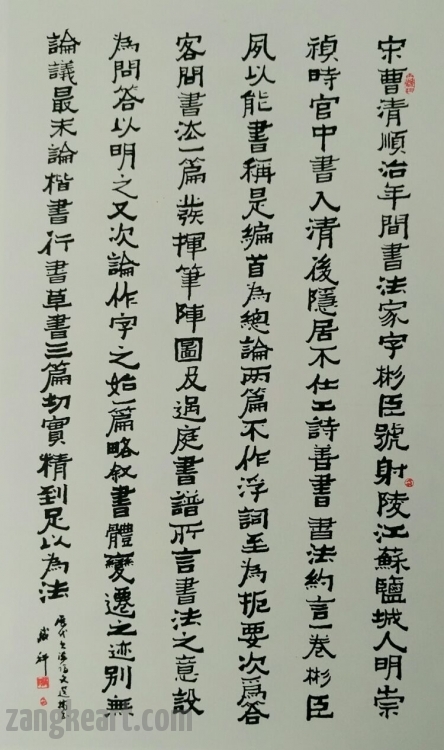 宋曹清順治年間書法家字彬臣號射陵江蘇鹽城人明崇
禎時官中書入清後隱居不仕工詩善書書法約言一卷彬臣
夙以能書稱是編首為總論兩篇不作浮詞至為扼要次為答
客問書法一篇發揮筆陣圖及過庭書譜所言書法之意設
為問答以明之又次論作字之始一篇略敘書體變遷之迹別無
論議最末論楷書行書草書三篇切實精到足以為法
歷代書法論文選摘句
zangkeart.com